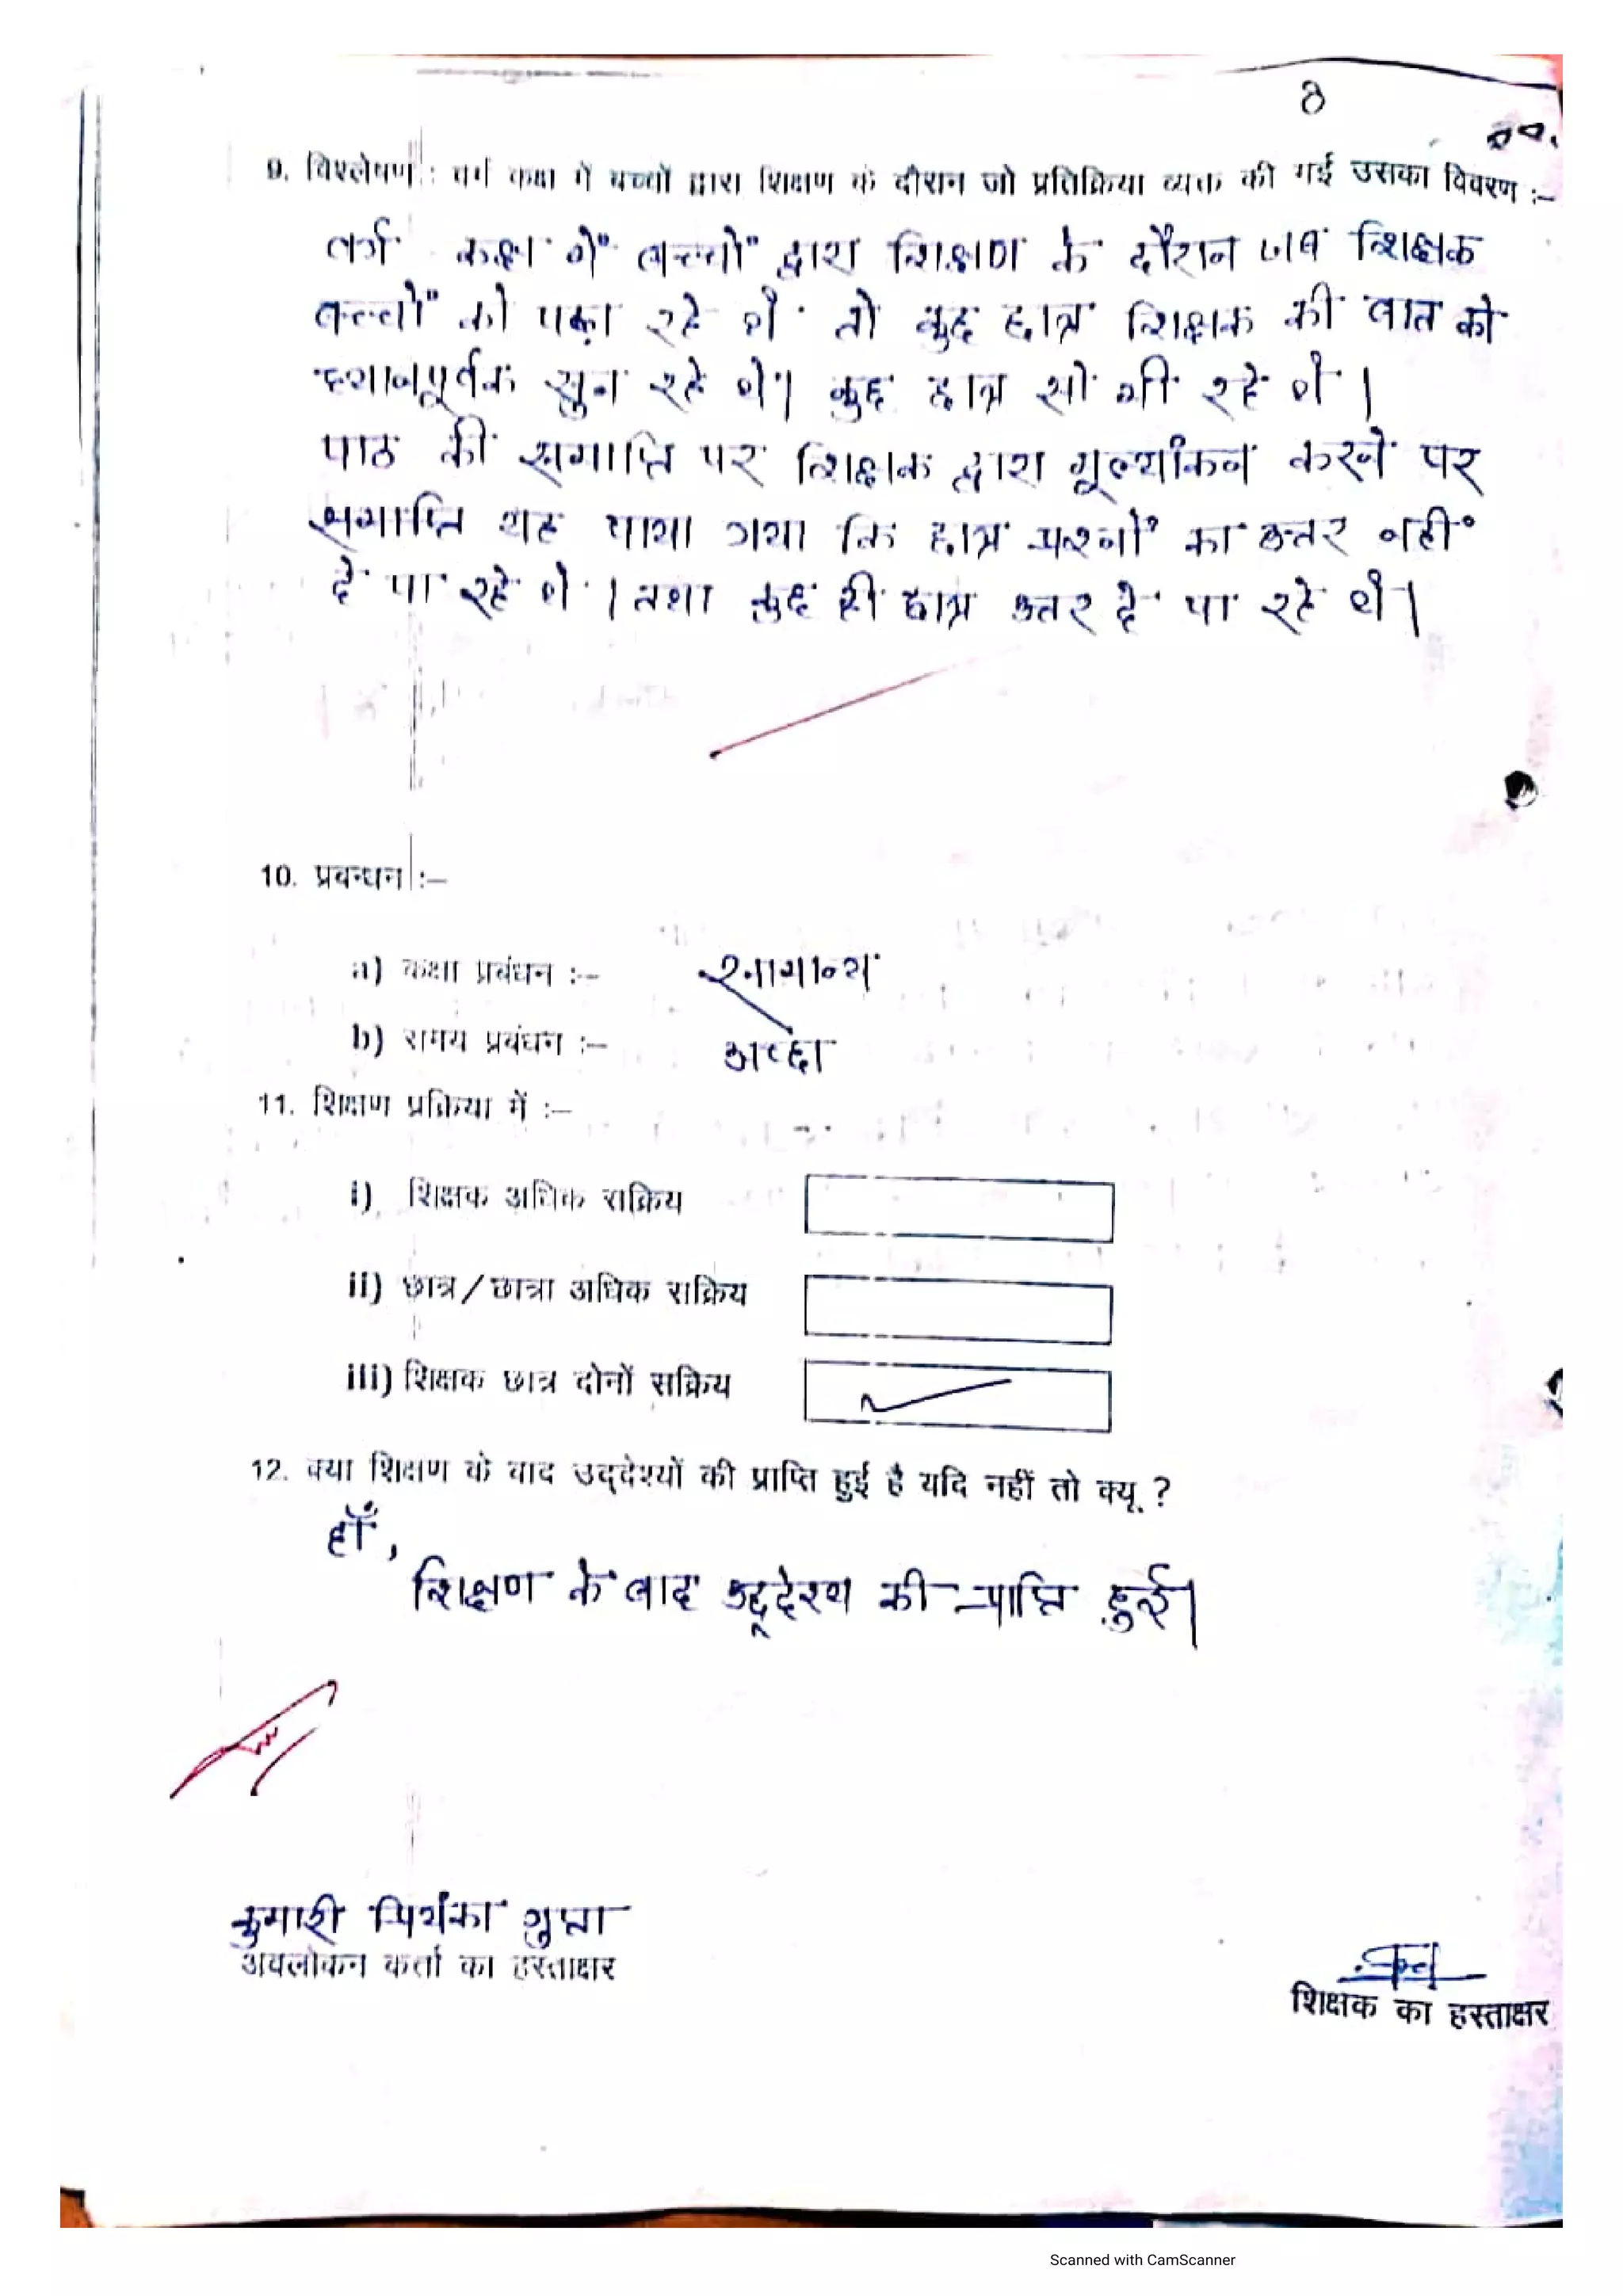 8
9. विश्लेषण : वर्ग कक्षा में बच्चों द्वारा शिक्षण के दौरान जो प्रतिक्रिया व्यक्त की गई उसका विवरण :–
वर्ग कक्षा में बच्चों द्वारा शिक्षण के दौरान जब शिक्षक
बच्चों को पढ़ा रहे थे तो कुछ छात्र शिक्षक की बात को
ध्यानपूर्वक सुन रहे थे। कुछ छात्र सो भी रहे थे।
पाठ की समाप्ति पर शिक्षक द्वारा मूल्यांकन करने पर
समाप्ति यह पाया गया कि छात्र प्रश्नों का उत्तर नहीं
दे पा रहे थे। तथा कुछ ही छात्र उतर दे पा रहे थे।
10. प्रबन्धन :–
a) कक्षा प्रबंधन :– सामान्य
b) समय प्रबंधन :– अच्छा
11. शिक्षण प्रक्रिया में :–
i) शिक्षक अधिक सक्रिय
ii) छात्र/छात्रा अधिक सक्रिय
iii) शिक्षक छात्र दोनों सक्रिय ✓
12. क्या शिक्षण के बाद उद्देश्यों की प्राप्ति हुई है यदि नहीं तो क्यू ?
हाँ,
शिक्षण के बाद उद्देश्य की प्राप्ति हुई।
कुमारी प्रियंका गुप्ता
अवलोकन कर्ता का हस्ताक्षर
शिक्षक का हस्ताक्षर
Scanned with CamScanner